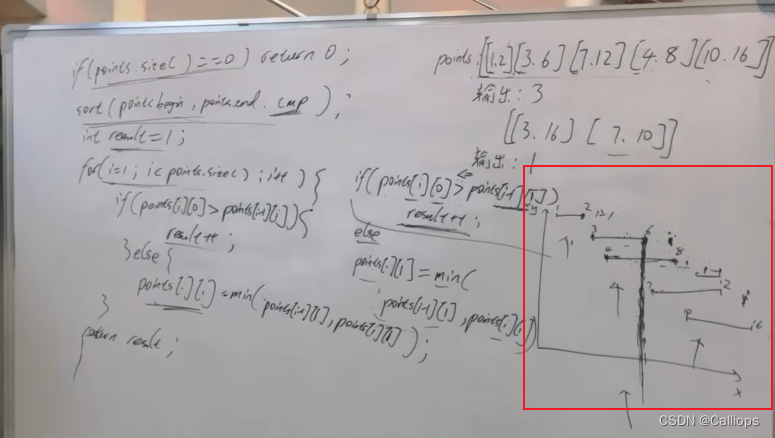 if(points.size()==0) return 0;
sort(points.begin, points.end. cmp);
int result=1;
for(i=1; i<points.size(); i++){
if(points[i][0]>points[i-1][1]){
result++;
}else{
points[i][1]=min(points[i-1][1],points[i][1]);
}
return result;
points:[[1.2][3.6][7.12][4.8][10.16]]
输出:3
[[3.16] [7.10]]
输出:1
if(points[i][0]>points[i-1][1])
result++;
else
points[i][1]=min(
points[i-1][1],points[i][1])
y
1 2
3 6
4 8
7 12
16
x
CSDN @Calliops